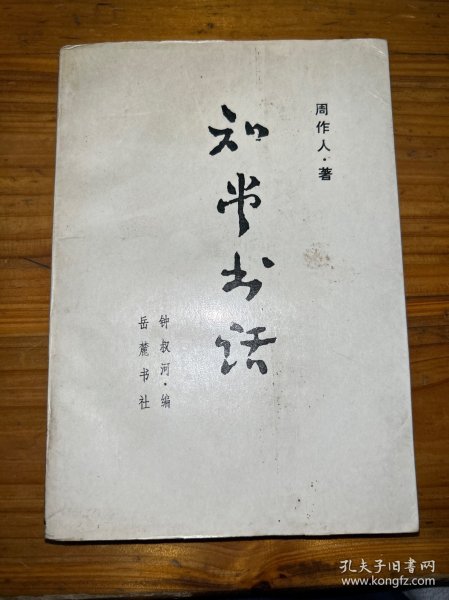 周作人·著
知堂书话
钟叔河·编
岳麓书社
孔夫子旧书网
www.kongfz.com